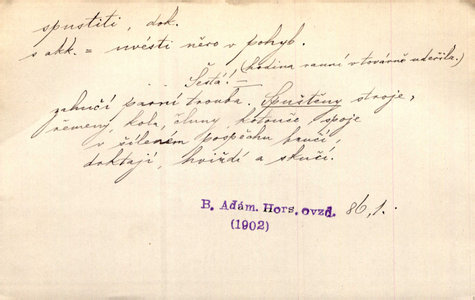 spustiti, dok.
s akk. = uvésti něco v pohyb.
Šestá! – (hodina ranní v továrně udeřila.)
zahučí parní trouba. Spuštěny stroje,
řemeny, kola, čluny, kotouče, spoje
v šíleném pospěchu hančí,
doktají, hviždí a skučí.
B. Adám. Hors. ovzd. 86, 1.
(1902)